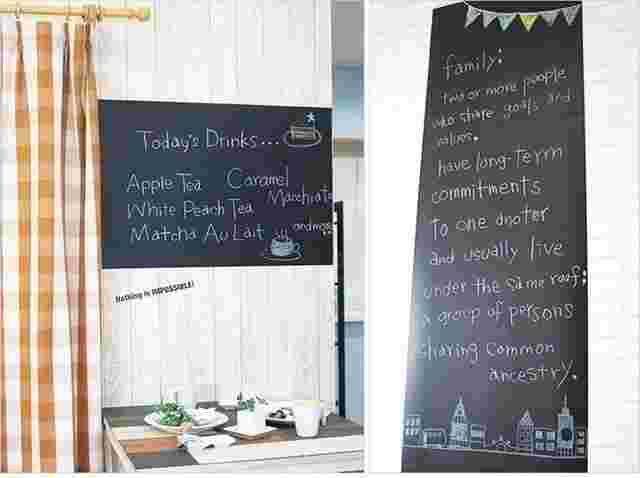 Today's Drinks...
Apple Tea Caramel
Macchiato
White Peach Tea
Matcha Au Lait and more
Nothing is IMPOSSIBLE!
family:
two or more people
who share goals and
values.
have long-term
commitments
to one anoter
and usually live
under the same roof;
a group of persons
sharing common
ancestry.